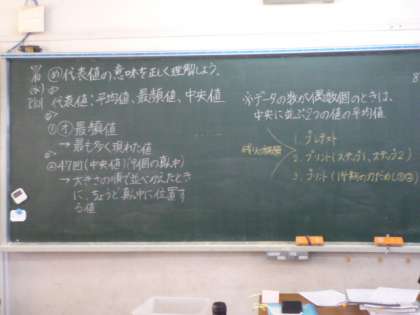 め 代表値の意味を正しく理解しよう。
代表値：平均値、最頻値、中央値
① オ 最頻値
→最も多く現れた値
② 47回(中央値)(9個の真ん中)
→大きさの順で並べかえたとき
に、ちょうど真ん中に位置す
る値
※データの数が偶数個のときは、
中央に並ぶ2つの値の平均値
残りの時間
1. プレテスト
2. プリント(ステップ1、ステップ2)
3. プリント(1学期の力だめし①②)
8